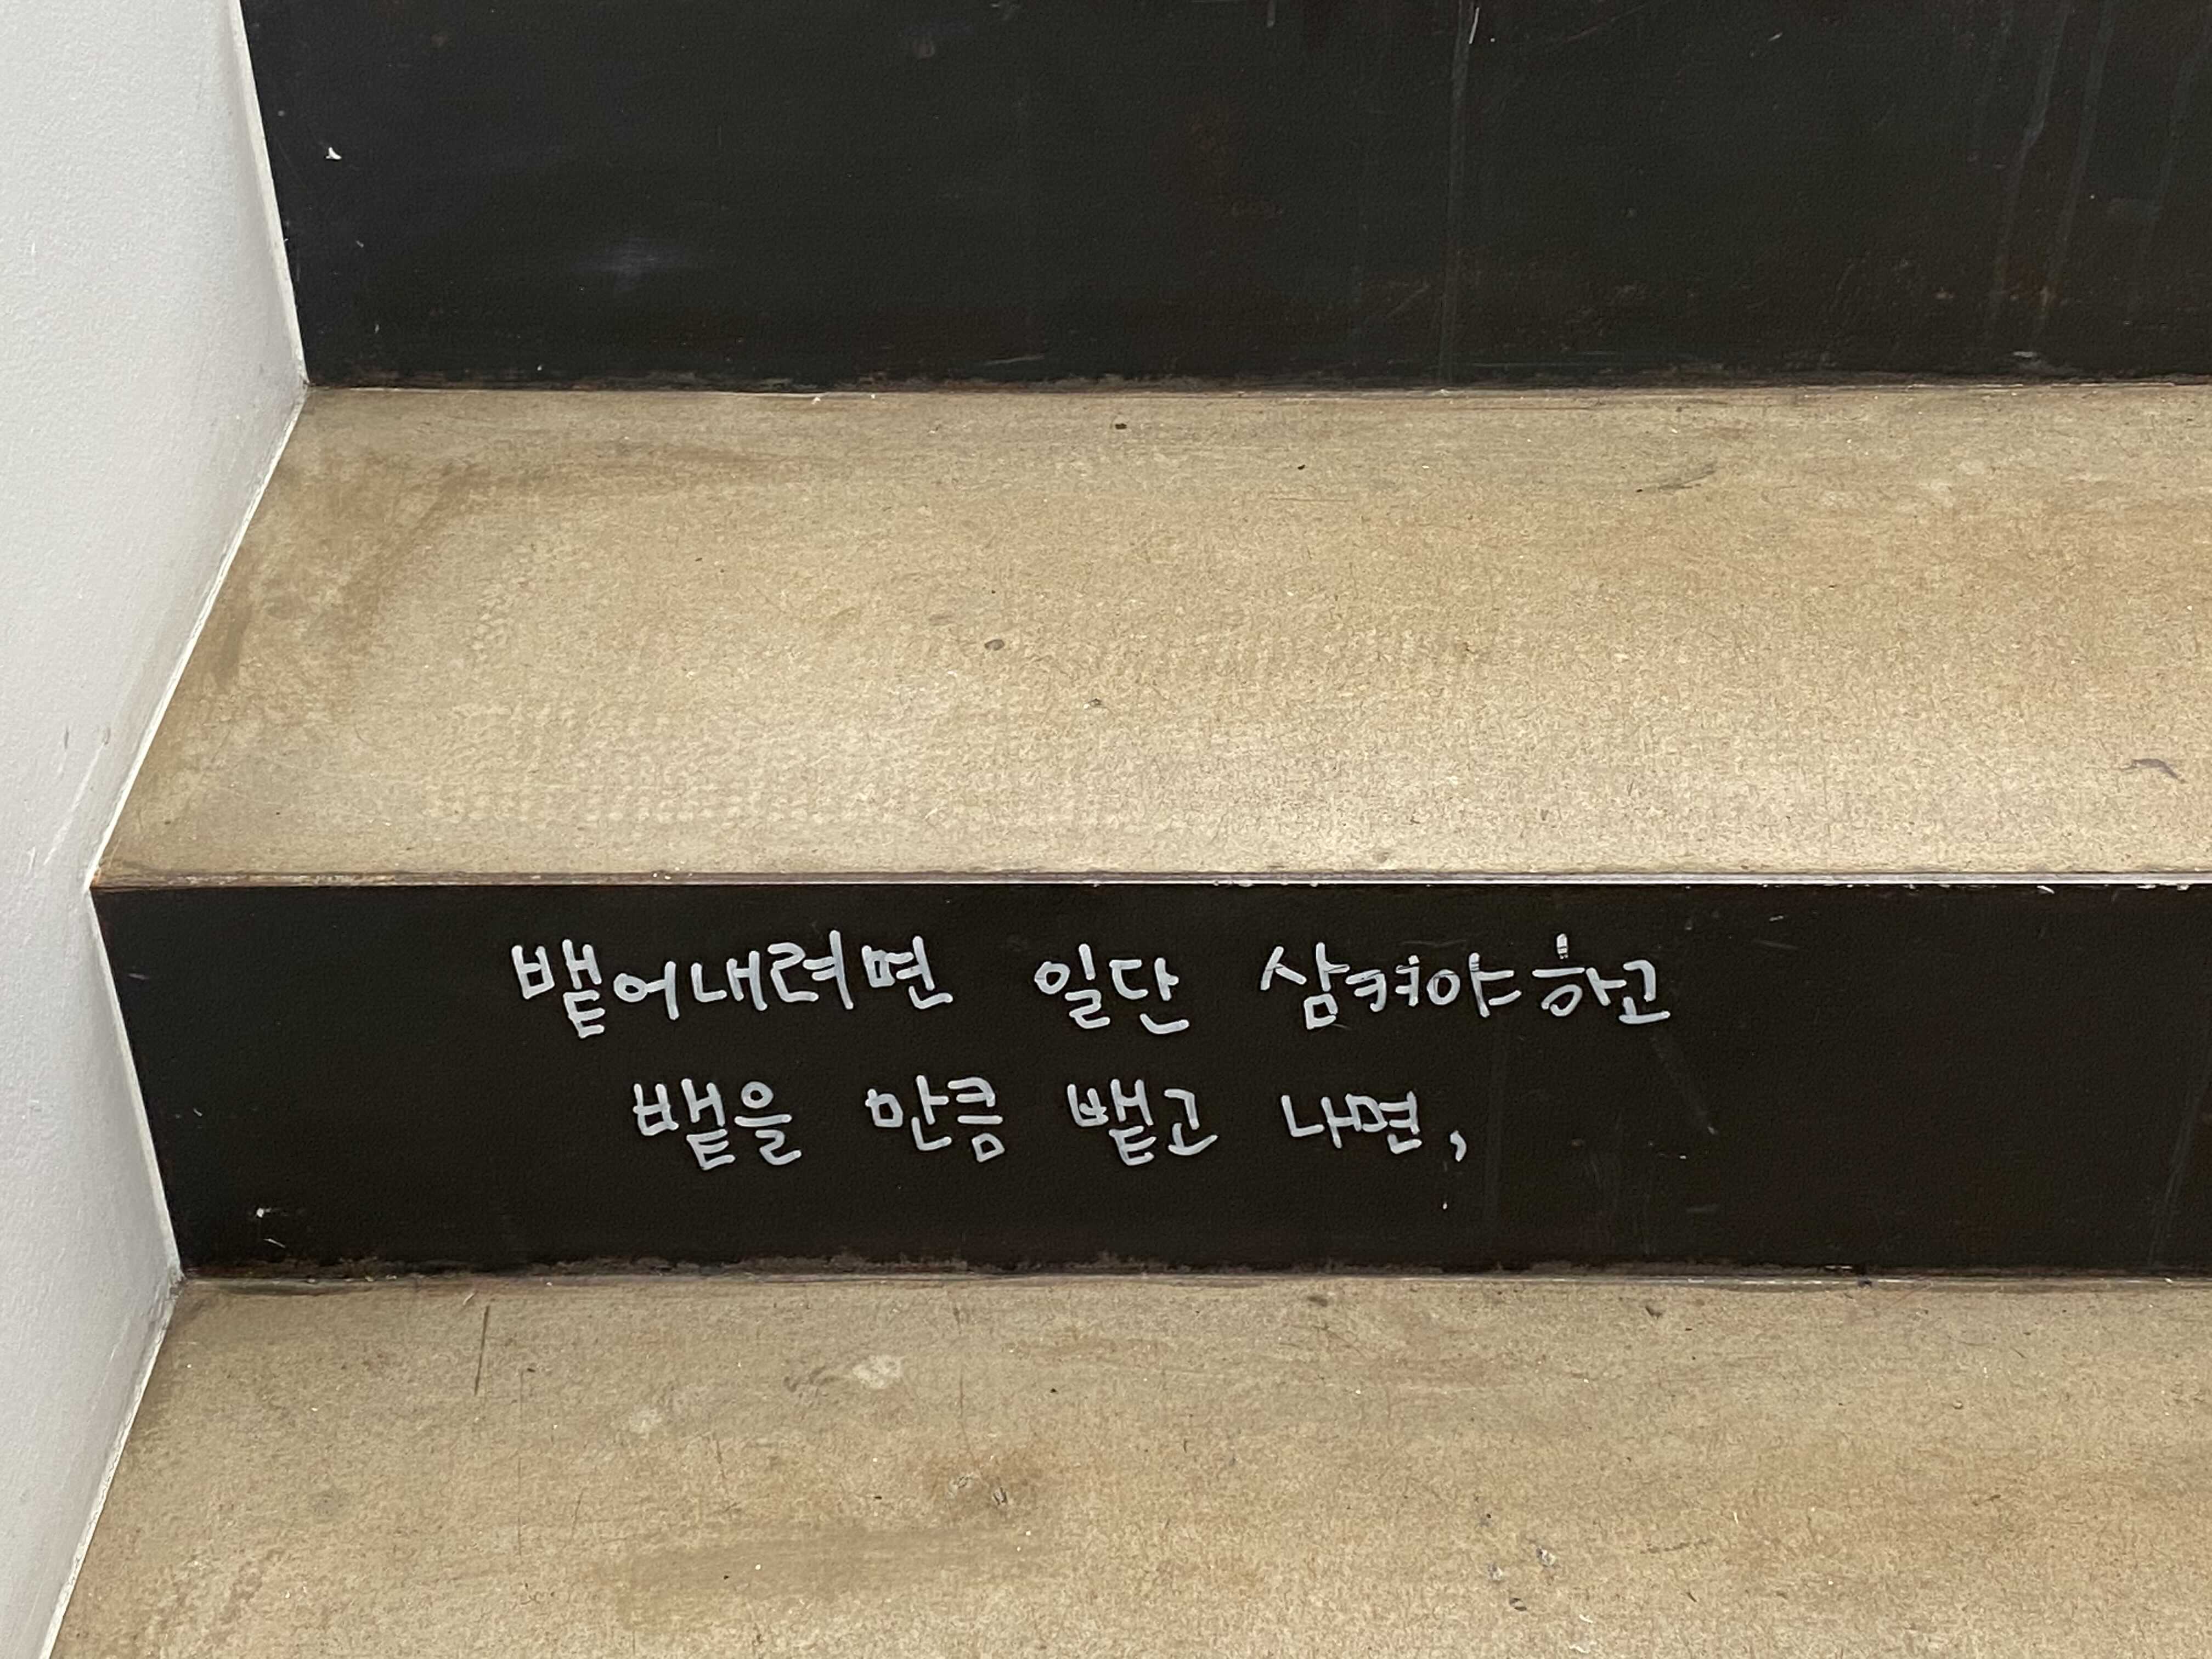 뱉어내려면 일단 삼켜야하고
뱉을 만큼 뱉고 나면,